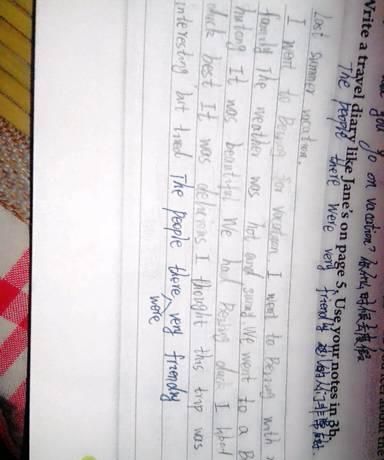 you go on vacation?
Write a travel diary like Jane's on page 5. Use your notes in 3b.
The people there were very friendly
Last summer vacation.
I went to Beijing for vacation I went to Beijing with
family The weather was hot and We went to a B
hutong It was beautiful We had Beijing duck I
duck best It was delicious I thought this trip was
interesting but tired The people there very friendly
were